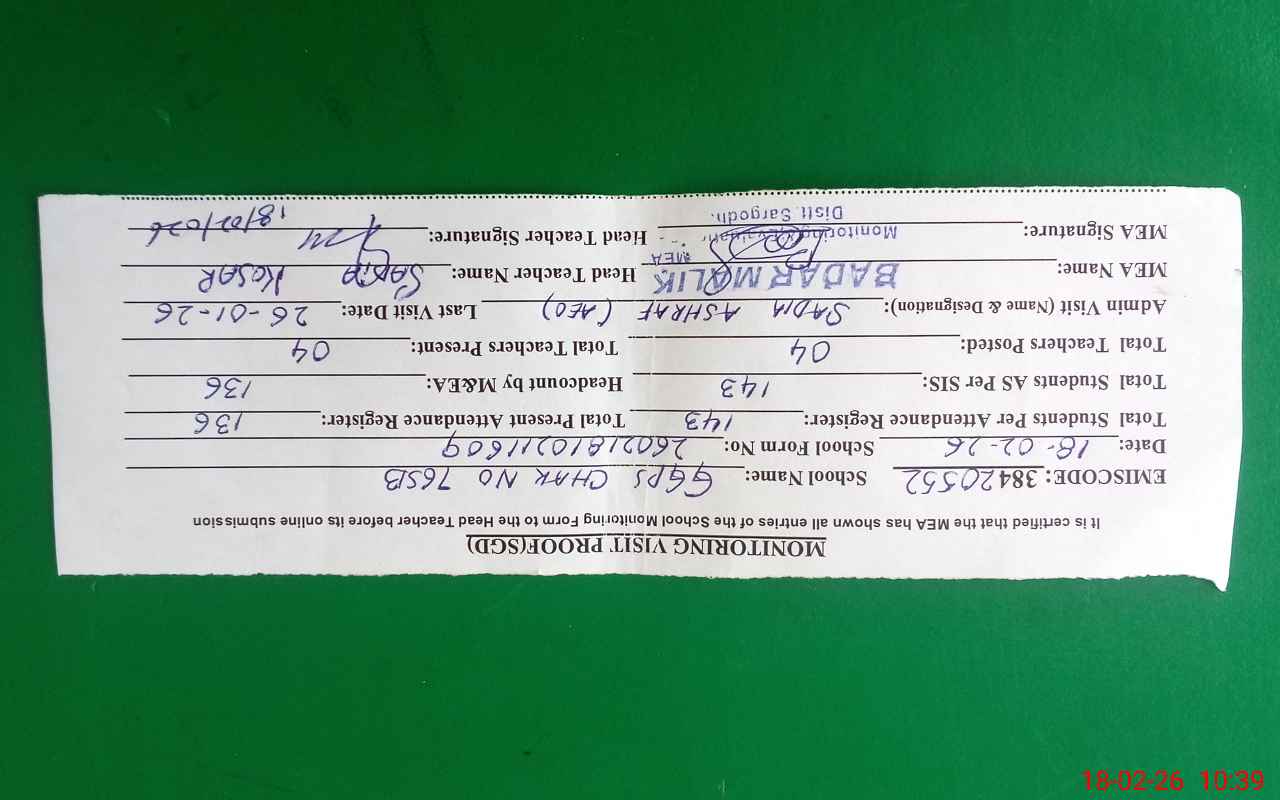 MONITORING VISIT PROOF(SGD)
It is certified that the MEA has shown all entries of the School Monitoring Form to the Head Teacher before its online submission
EMISCODE: 38420552 School Name: GGPS CHAK NO 76SB
Date: 18-02-26 School Form No: 26021810211609
Total Students Per Attendance Register: 143 Total Present Attendant Register: 136
Total Students AS Per SIS: 143 Headcount by M&EA: 136
Total Teachers Posted: 04 Total Teachers Present: 04
Admin Visit (Name & Designation): SADIA ASHRAF (AEO) Last Visit Date: 26-01-26
MEA Name: BADAR MALIK Head Teacher Name: SADIA KOSAR
MEA
MEA Signature: Monitoring Head Teacher Signature: 18/02/026
Distt. Sargodh.
18-02-26 10:39